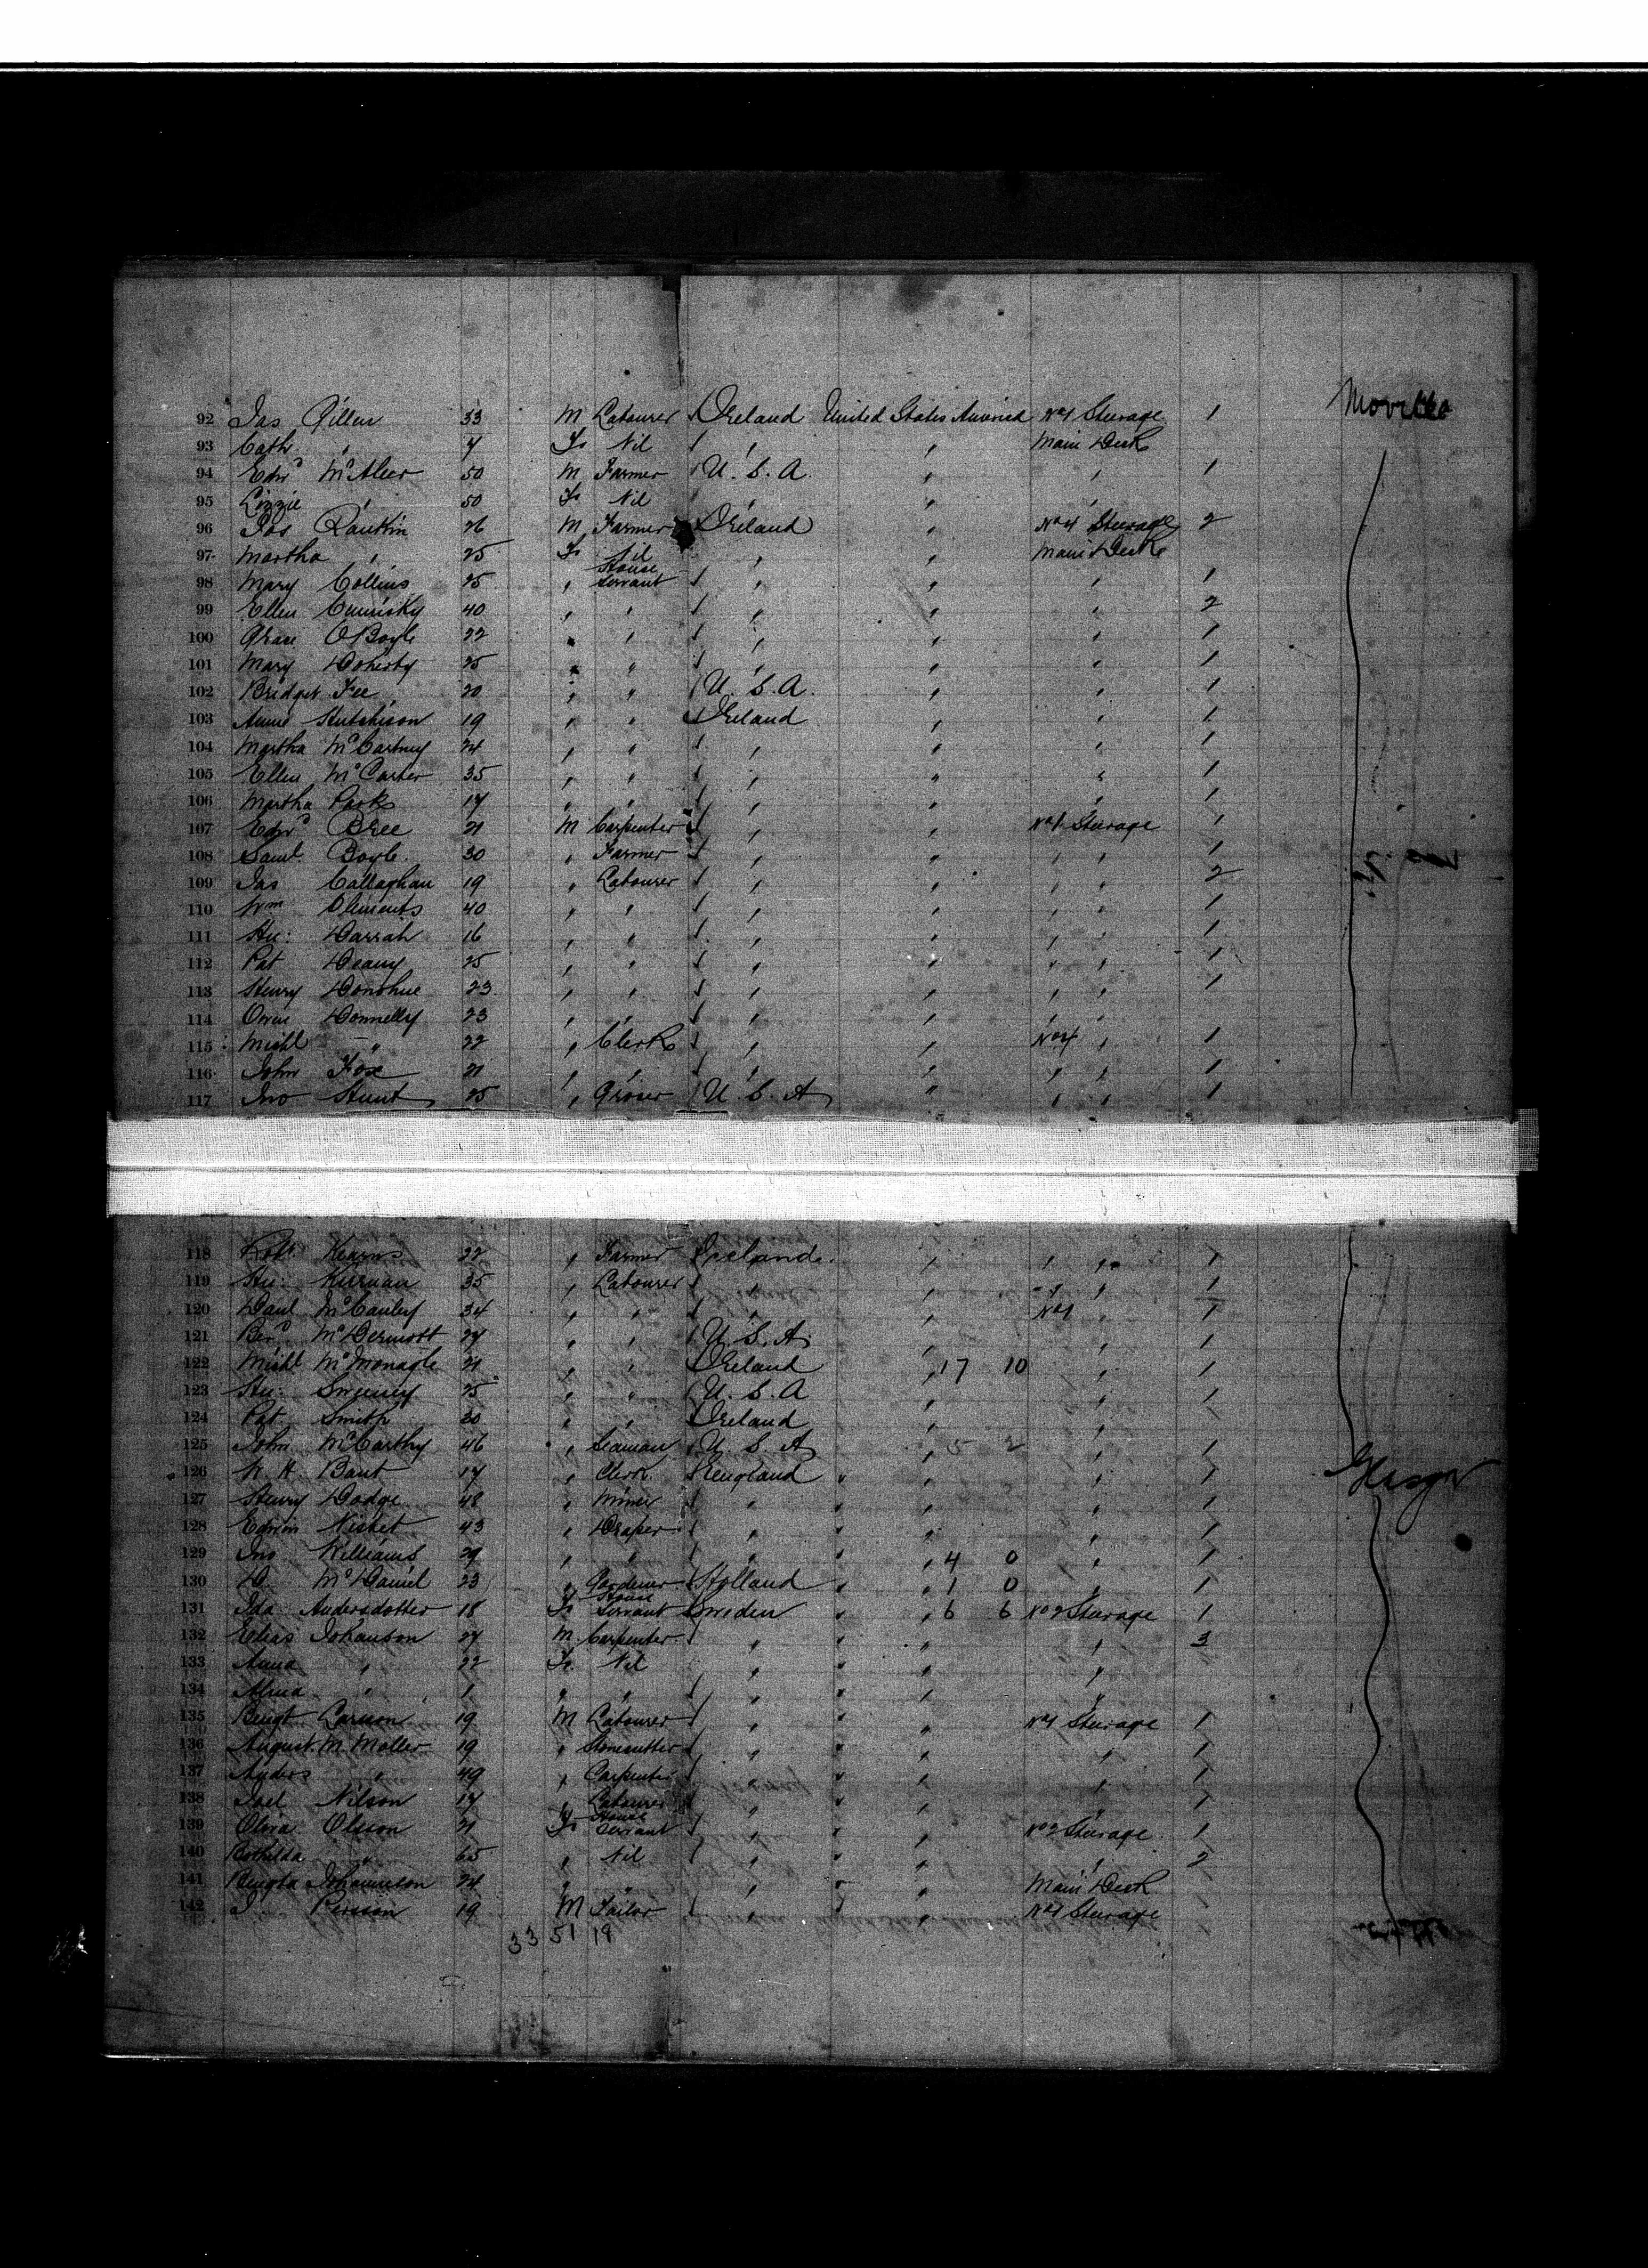 Moville
92 Jas Gillen 33 M Labourer Ireland United States America No 1 Steerage 1
93 Cath " 7 F Nil " " Main Deck
94 Edwd McAleer 50 M Farmer U.S.A " " 1
95 Lizzie " 50 F Nil " " "
96 Jas Rankin 26 M Farmer Ireland " No 4 Steerage 2
97 Martha " 25 F Nil " " Main Deck
98 Mary Collins 25 " House Servant " " " 1
99 Ellen 40 " " " " " 2
100 Grace O'Boyle 22 " " " " " 1
101 Mary Doherty 25 " " " " " 1
102 Bridget Fee 20 " " U.S.A. " " 1
103 Annie Hutchison 19 " " Ireland " " 1
104 Martha McCartney 24 " " " " " 1
105 Ellen McCarter 35 " " " " " 1
106 Martha Parks 17 " " " " " 1
107 Edwd Bree 21 M Carpenter " " No 1 Steerage 1
108 Saml Boyle 30 " Farmer " " " " 1
109 Jas Callaghan 19 " Labourer " " " " 2
110 Wm Clements 40 " " " " " " 1
111 Hu: Darrah 16 " " " " " " 1
112 Pat Deany 25 " " " " " " 1
113 Henry Donohue 23 " " " " " " 1
114 Owen Donnelly 23 " " " " " "
115 Michl " 22 " Clerk " " No 4 " 1
116 John Fox 21 " " " " " " 1
117 Jno Hunt 25 " Grocer U.S.A " " " 1
118 Robt Kearns 22 " Farmer Ireland " " " 1
119 Hu: Kiernan 35 " Labourer " " " " 1
120 Danl McCauley 34 " " " " No 1 " 1
121 Berd McDermott 27 " " U.S.A. " " 1
122 Michl McMonagle 21 " " Ireland " 17 10 " 1
123 Hu: Sweeney 25 " " U.S.A " " 1
124 Pat Smith 30 " " Ireland " "
125 John McCarthy 46 " Seaman U.S.A " 5 2 " 1
126 W.H. Bant 17 " Clerk England " " " 1
127 Henry Dodge 48 " Miner " " " " 1
128 Edwin Nisbet 43 " Draper " " " " 1
129 Jno Williams 29 " " " " " 4 0 " 1
130 D. McDaniel 23 " Gardener Holland " " 1 0 " 1
131 Ida Andersdotter 18 F House Servant Sweden " " 6 6 No 2 Steerage 1
132 Elias Johanson 27 M Carpenter " " " " 3
133 Anna " 22 F Nil " " " "
134 Alma " 1 " " " " " "
135 Bengt Larsson 19 M Labourer " " " No 1 Steerage 1
136 August M Moller 19 " Stonecutter " " " " 1
137 Anders " 49 " Carpenter " " " " 1
138 Joel Nilson 17 " Labourer " " " " 1
139 Olivia Olsson 21 F House Servant " " " No 2 Steerage 1
140 Bothilda " 65 " Nil " " " " 2
141 Bengta Johannson 24 " " " " " Main Deck
142 J. Persson 19 M Tailor " " " No 1 Steerage
33 51 19
Glasgow